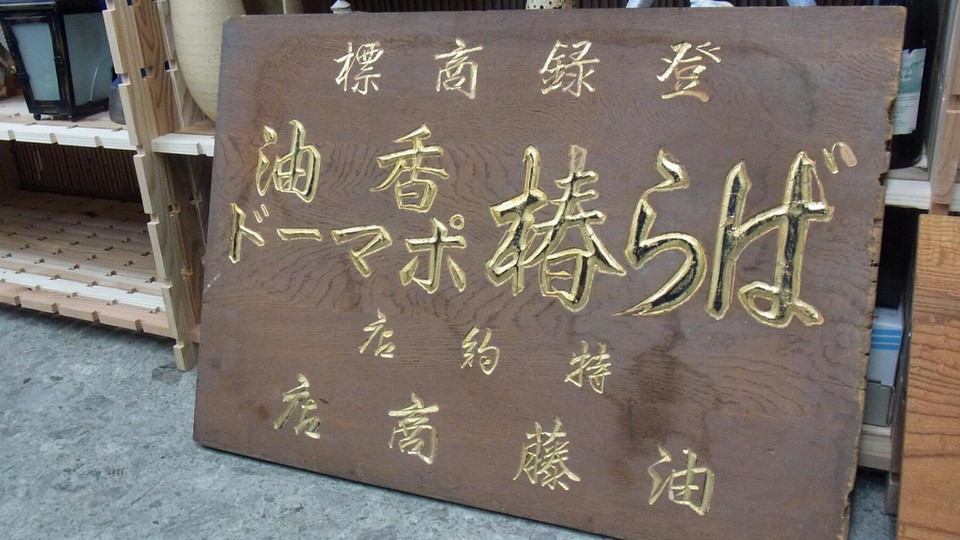 登録商標
ばら椿
香油
ポマード
特約店
油藤商店